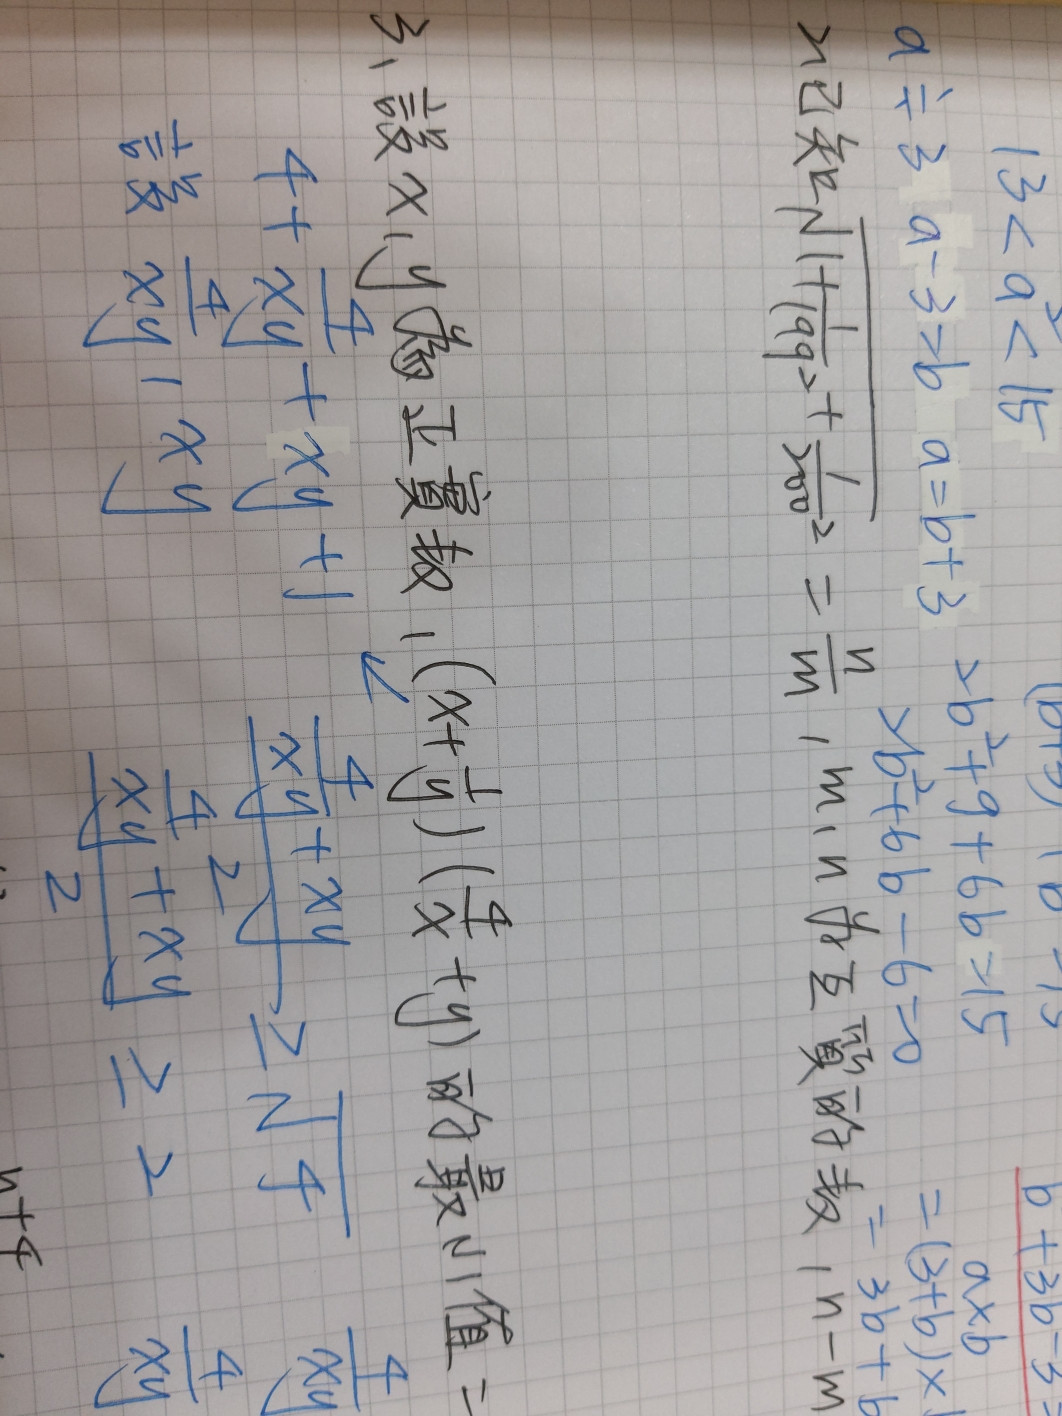 13 < a² < 15
a ÷ 3 a-3=b a=b+3
>b²+9+6b>15
>b²+6b-6=0
b+3b-3=
a×b
=(3+b)×
=3b+b
2 已知√1+1/199²+1/200² = n/m , m、n為互質的數,n-m
3、設x,y為正實數,(x+1/y)(4/x+y)的最小值=
4+4/xy+xy+1
設4/xy , xy
(4/xy+xy)/2 ≥ √4
(4/xy+xy)/2 ≥ 2
4/xy
4/xy
n+4